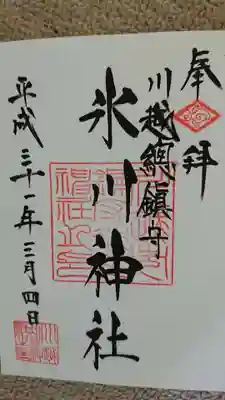 奉拜
川越總鎮守
氷川神社
平成三十一年三月四日